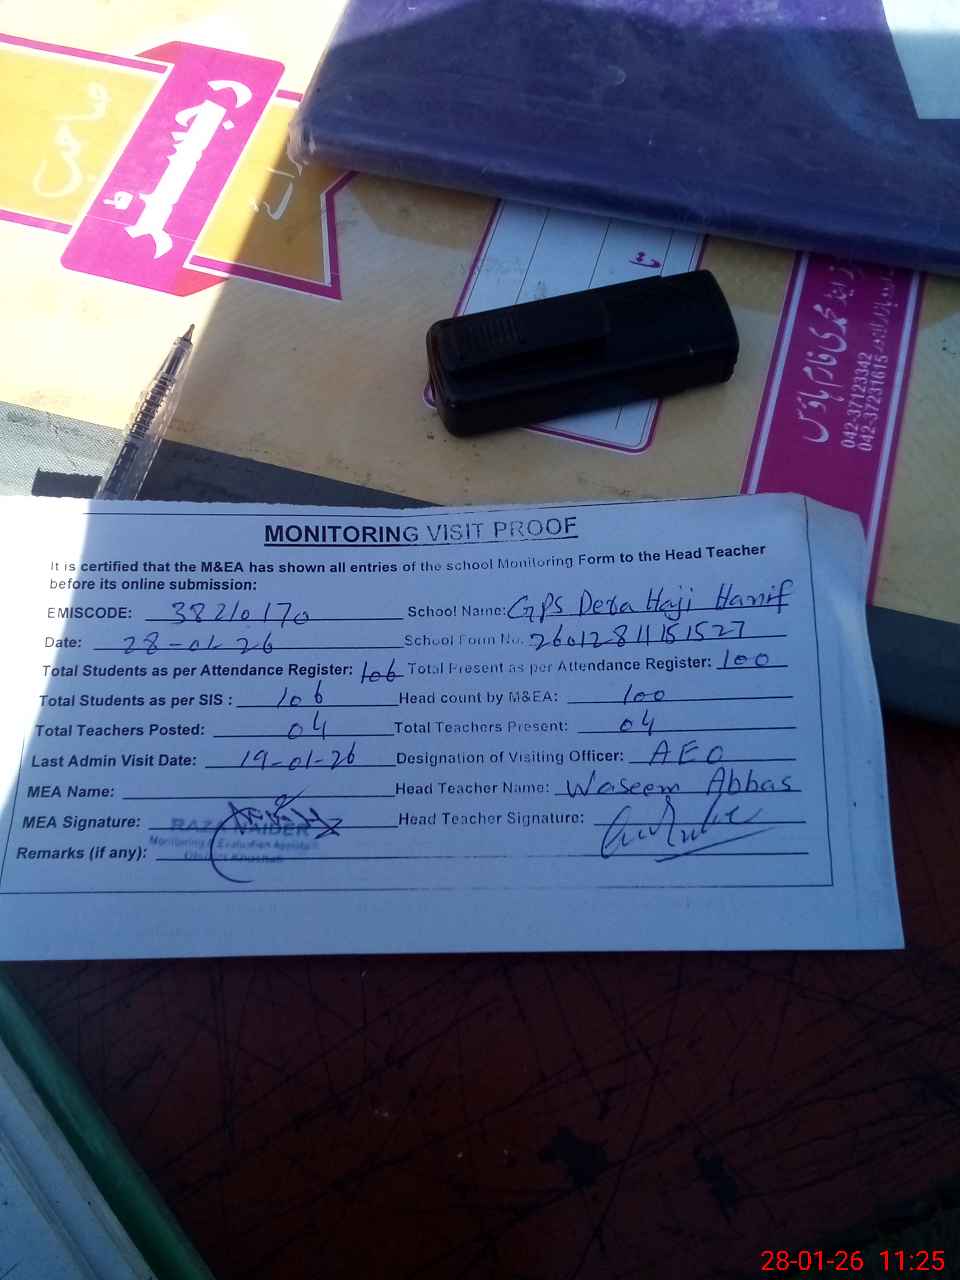 رجسٹر
042-37123342
042-37231615
MONITORING VISIT PROOF
It is certified that the M&EA has shown all entries of the school Monitoring Form to the Head Teacher
before its online submission:
EMISCODE: 38210170 School Name: GPS Dera Haji Hanif
Date: 28-01-26 School Form No. 26012811151527
Total Students as per Attendance Register: 106 Total Present as per Attendance Register: 100
Total Students as per SIS : 106 Head count by M&EA: 100
Total Teachers Posted: 04 Total Teachers Present: 04
Last Admin Visit Date: 19-01-26 Designation of Visiting Officer: AEO
MEA Name: Head Teacher Name: Waseem Abbas
MEA Signature: RAZA HAIDER Head Teacher Signature:
Monitoring & Evaluation Assistant
Remarks (if any): District Khushab
28-01-26 11:25